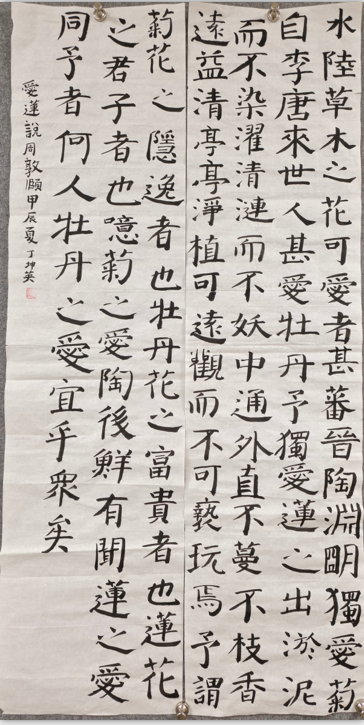 水陸草木之花可愛者甚蕃晉陶淵明獨愛菊
自李唐來世人甚愛牡丹予獨愛蓮之出淤泥
而不染濯清漣而不妖中通外直不蔓不枝香
遠益清亭亭淨植可遠觀而不可褻玩焉予謂
菊花之隱逸者也牡丹花之富貴者也蓮花
之君子者也噫菊之愛陶後鮮有聞蓮之愛
同予者何人牡丹之愛宜乎眾矣
愛蓮說周敦頤甲辰夏丁坤英